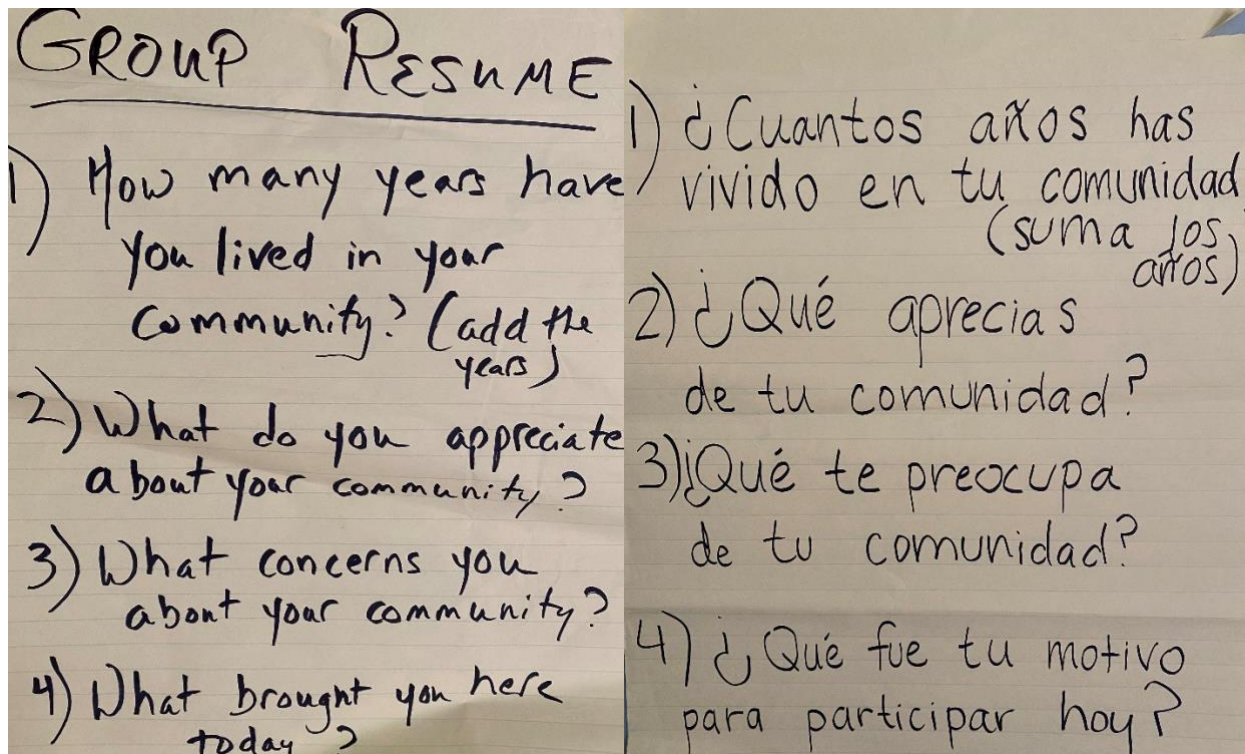 GROUP RESUME
1) How many years have
you lived in your
community? (add the
years)
2) What do you appreciate
about your community?
3) What concerns you
about your community?
4) What brought you here
today?
1) ¿Cuantos años has
vivido en tu comunidad
(suma los
años)
2) ¿Qué aprecias
de tu comunidad?
3) ¿Qué te preocupa
de tu comunidad?
4) ¿Qué fue tu motivo
para participar hoy?